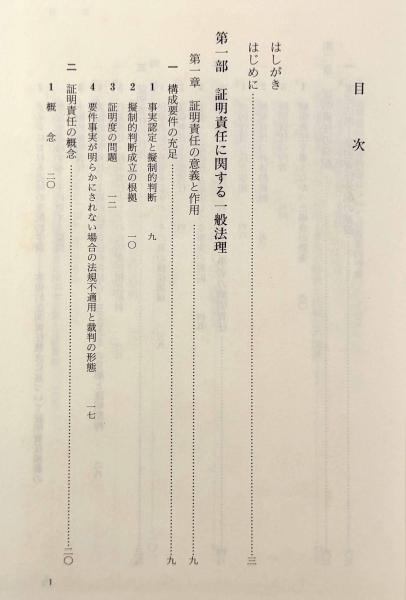 目次
はしがき
はじめに……………………………三
第一部 証明責任に関する一般法理
第一章 証明責任の意義と作用……………………………九
一 構成要件の充足……………………………九
1 事実認定と擬制的判断 九
2 擬制的判断成立の根拠 一〇
3 証明度の問題 一二
4 要件事実が明らかにされない場合の法規不適用と裁判の形態 一七
二 証明責任の概念……………………………二〇
1 概念 二〇
1